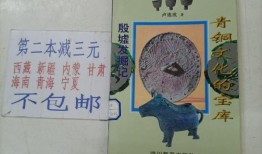 第二本减三元
西藏 新疆 内蒙 甘肃
海南 青海 宁夏
不包邮
青铜文化的宝库
殷墟发掘记